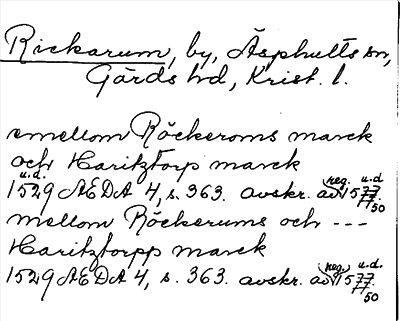 Rickarum, by, Äsphults sn,
Gärds hd, Krist. l.
emellom Röckeroms marck
och Haritztorp marck
u.d. reg. u.d.
1529 AEDA 4, s. 363. avskr. av 1577.
50
mellom Röckerums och ---
Haritztorpp marck
reg. u.d.
1529 AEDA 4, s. 363. avskr. av 1577.
50